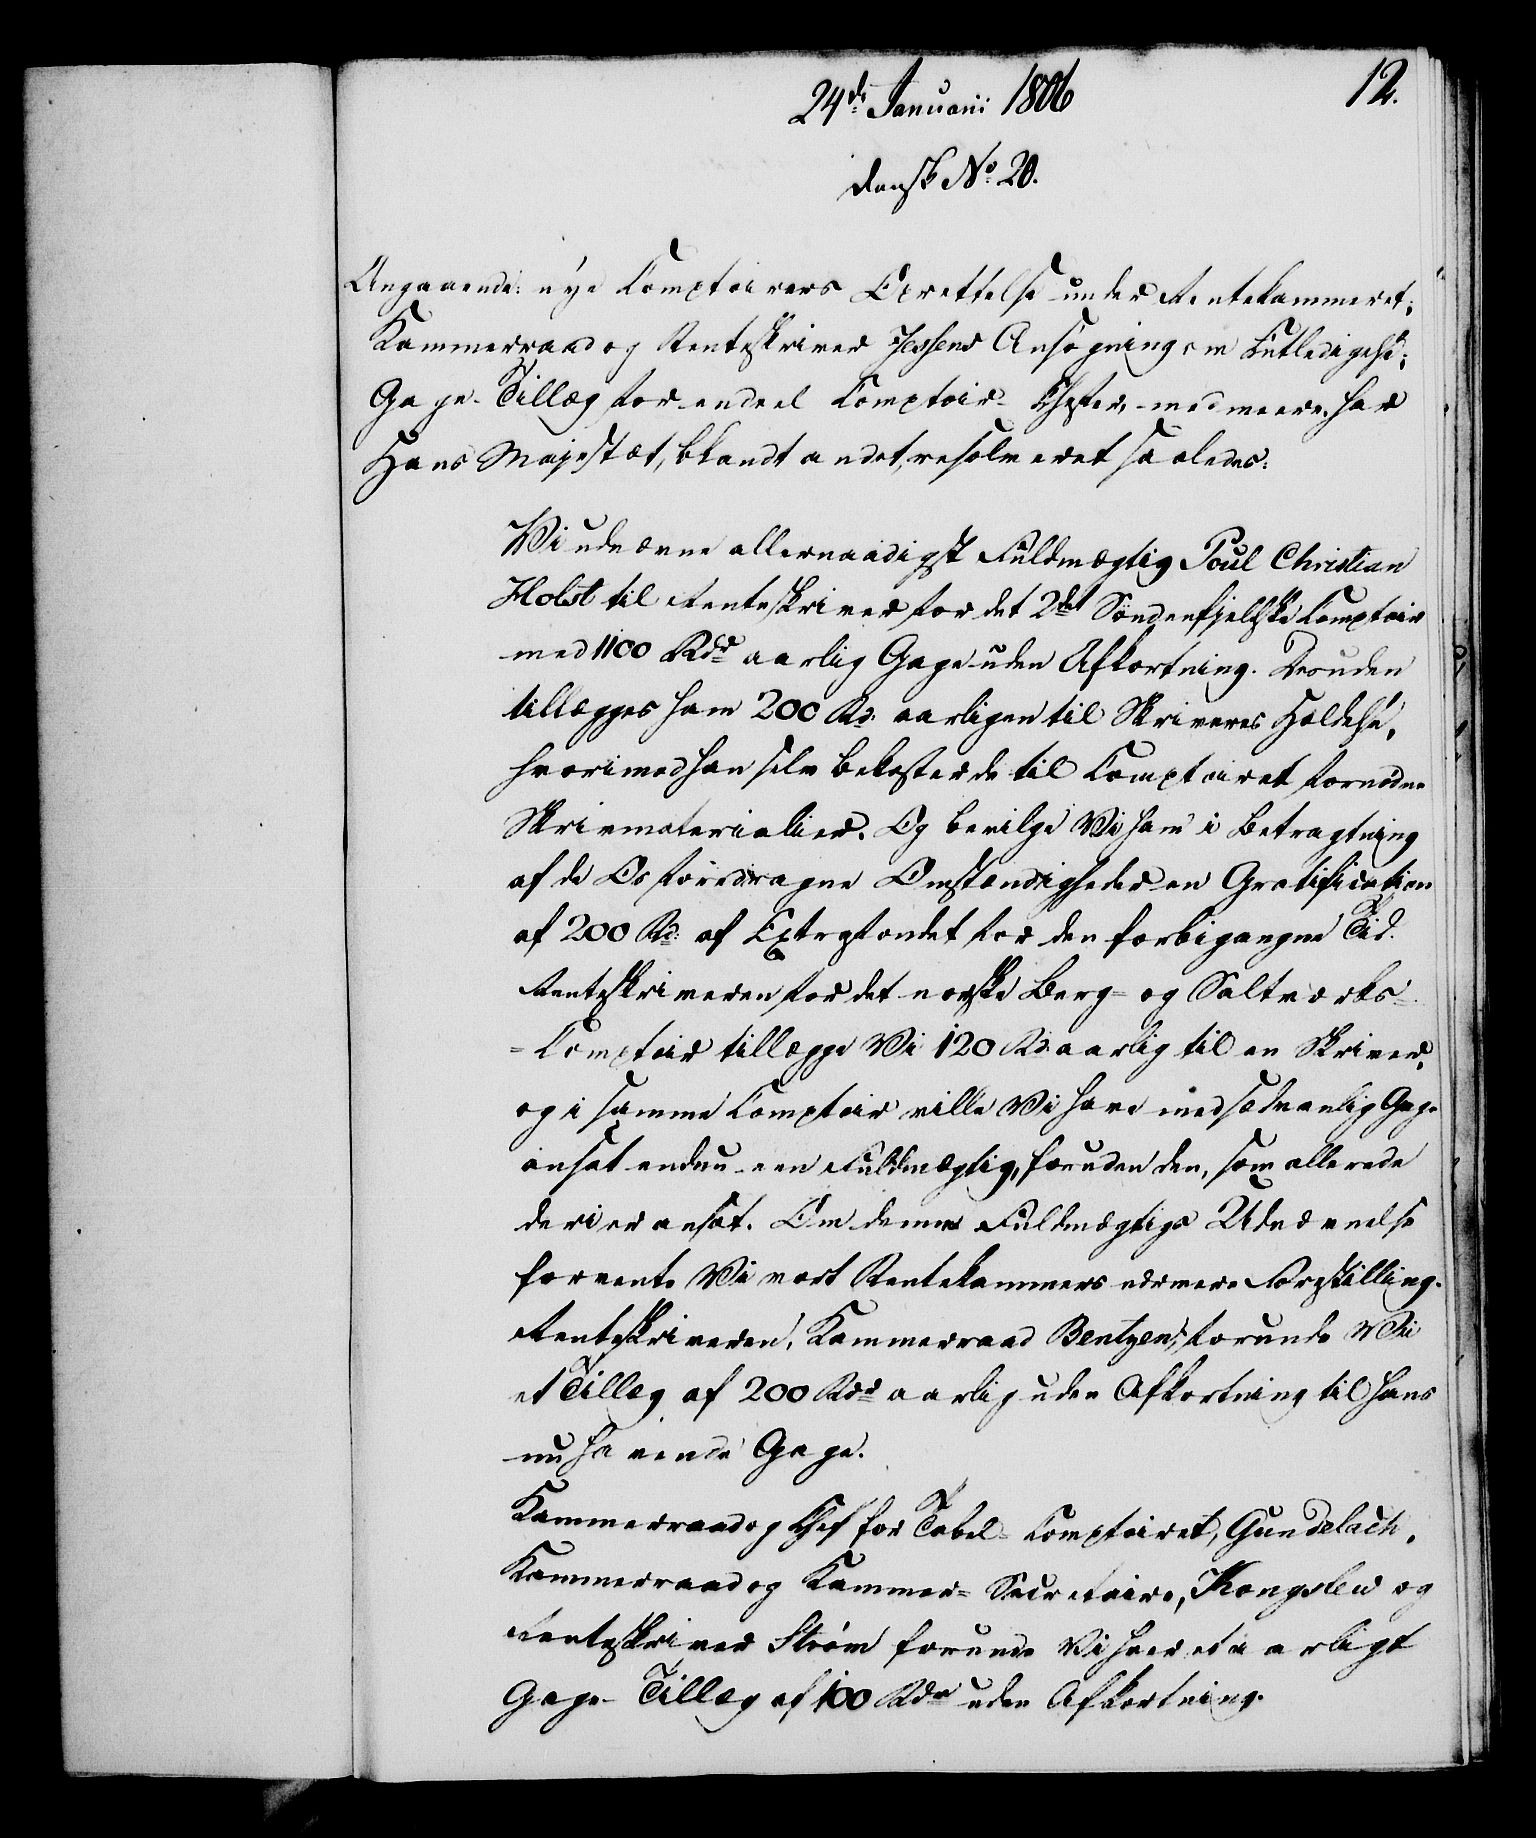 12.
24de Januarii 1806
dansk No. 20.
Angaaende: nye Comptoirers Oprettelse under Rentekammeret;
Kammerraad og Renteskriver Jessens Ansøgning om Entledigelse;
Gage-Tillæg for endeel Comptoir-Chefer, med meere, har
Hans Majestæt, blandt andet, resolveret saaledes:
Vi udnævne allernaadigst Fuldmægtig Poul Christian
Holst til Renteskriver for det 2det Søndenfjeldske Comptoir
med 1100 Rdr aarlig Gage uden Afkortning. Desuden
tillægges ham 200 Rd. aarligen til Skriveres Holdelse,
hvorimod han selv bekoster de til Comptoiret fornødne
Skrivmaterialier. Og bevilge Vi ham i Betragtning
af de Os foredragne Omstændigheder en Gratification
af 200 Rd. af Extrafondet for den forbigangne Tid.
Renteskriveren for det norske Berg- og Saltværks-
-Comptoir tillægge Vi 120 Rd. aarlig til en Skriver,
og i samme Comptoir ville Vi have med sædvanlig Gage
ansat endnu een Fuldmægtig, foruden den, som allerede
deri er ansat. Om denne Fuldmægtigs Udnævnelse
forvente Vi vort Rentekammers nærmere Forestilling.
Renteskriveren, Kammerraad Bentzen, forunde Vi
et Tillæg af 200 Rdr aarlig uden Afkortning til hans
nu havende Gage.
Kammerraad og Chef for Tabel-Comptoiret, Gundelach,
Kammerraad og Kammer-Secretaire, Kongslew og
Renteskriver Strøm forunde Vi hver et aarligt
Gage-Tillæg af 100 Rdr uden Afkortning.